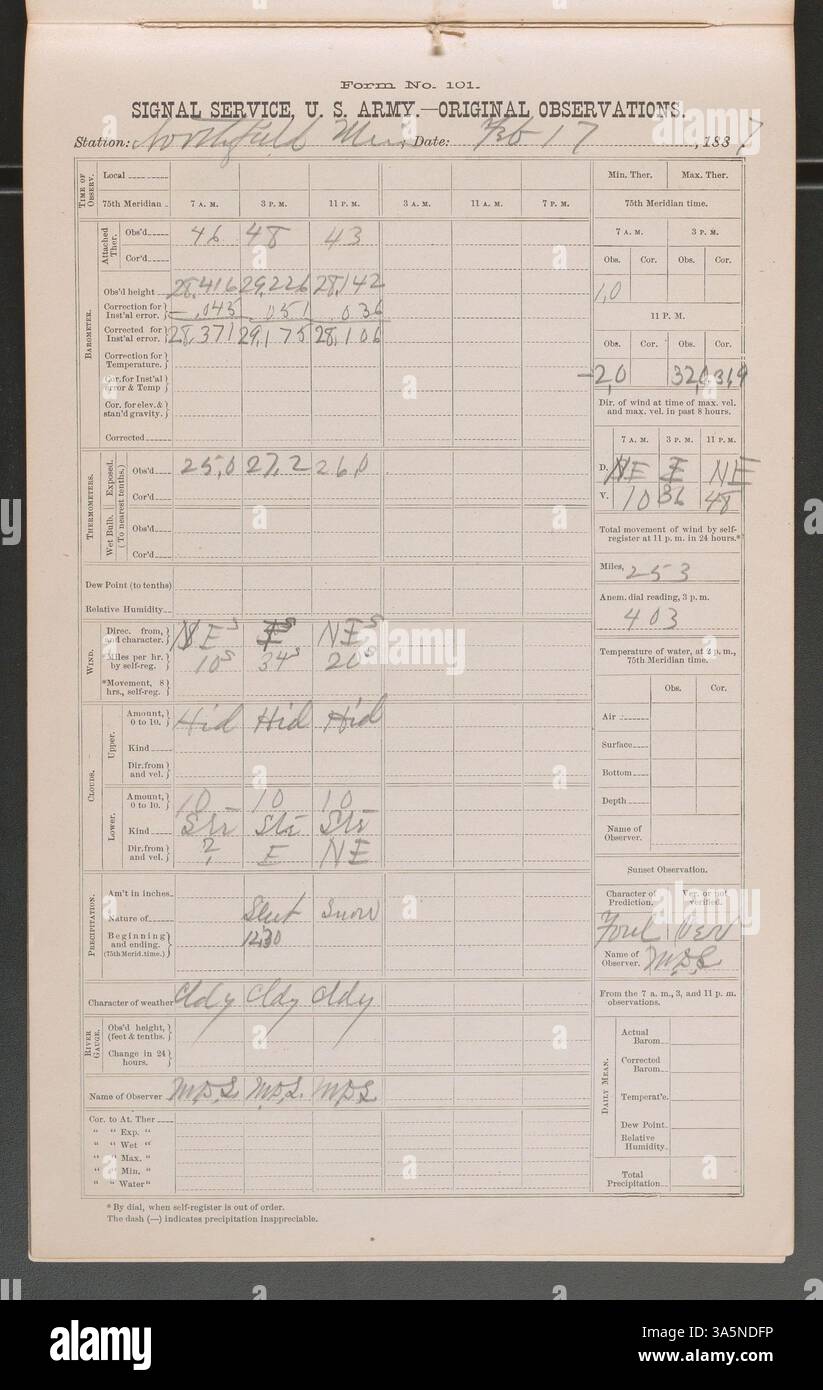 Form No. 101.
SIGNAL SERVICE, U. S. ARMY.—ORIGINAL OBSERVATIONS.
Station: Northfield Date: Feb 17, 1887.
TIME OF OBSERV.
Local
75th Meridian 7 A. M. 3 P. M. 11 P. M. 3 A. M. 11 A. M. 7 P. M.
BAROMETER.
Attached Ther.
Obs'd 46 48 43
Cor'd
Obs'd height 28.416 29.226 28.142
Correction for Inst'al error. -.045 .051 .036
Corrected for Inst'al error. 28.371 29.175 28.106
Correction for Temperature.
Cor. for Inst'al error & Temp
Cor. for elev. & stan'd gravity.
Corrected
THERMOMETERS.
Exposed.
Wet Bulb.
(To nearest tenths.)
Obs'd 25.0 27.2 26.0
Cor'd
Obs'd
Cor'd
Dew Point (to tenths)
Relative Humidity
WIND.
Direc. from, and character. NE s E s NE s
*Miles per hr. by self-reg. 10 s 34 s 20 s
*Movement, 8 hrs., self-reg.
CLOUDS.
Upper.
Amount, 0 to 10. Hid Hid Hid
Kind
Dir. from and vel.
Lower.
Amount, 0 to 10. 10 10 10
Kind Str Str Str
Dir. from and vel. ? E NE
PRECIPITATION.
Am't in inches
Nature of Sleet Snow
Beginning and ending. (75th Merid. time.) 12.30
Character of weather Cldy Cldy Cldy
RIVER GAUGE.
Obs'd height, (feet & tenths.)
Change in 24 hours.
Name of Observer M.D.S. M.D.S. M.D.S.
Cor. to At. Ther
" " Exp. "
" " Wet "
" " Max. "
" " Min. "
" " Water "
* By dial, when self-register is out of order.
The dash (—) indicates precipitation inappreciable.
Min. Ther. Max. Ther.
75th Meridian time.
7 A. M. 3 P. M.
Obs. Cor. Obs. Cor.
1.0
11 P. M.
Obs. Cor. Obs. Cor.
-2.0 32.0 31.9
Dir. of wind at time of max. vel. and max. vel. in past 8 hours.
7 A. M. 3 P. M. 11 P. M.
D. NE E NE
V. 10 36 48
Total movement of wind by self-register at 11 p. m. in 24 hours.*
Miles, 253
Anem. dial reading, 3 p. m.
403
Temperature of water, at 2 p. m., 75th Meridian time.
Obs. Cor.
Air
Surface
Bottom
Depth
Name of Observer.
Sunset Observation.
Character of Prediction. Ver. or not verified.
Foul Ver
Name of Observer. M.D.S
From the 7 a. m., 3, and 11 p. m. observations.
DAILY MEAN.
Actual Barom
Corrected Barom
Temperat'e
Dew Point
Relative Humidity
Total Precipitation
alamy
Image ID: 3A5NDFP
www.alamy.com